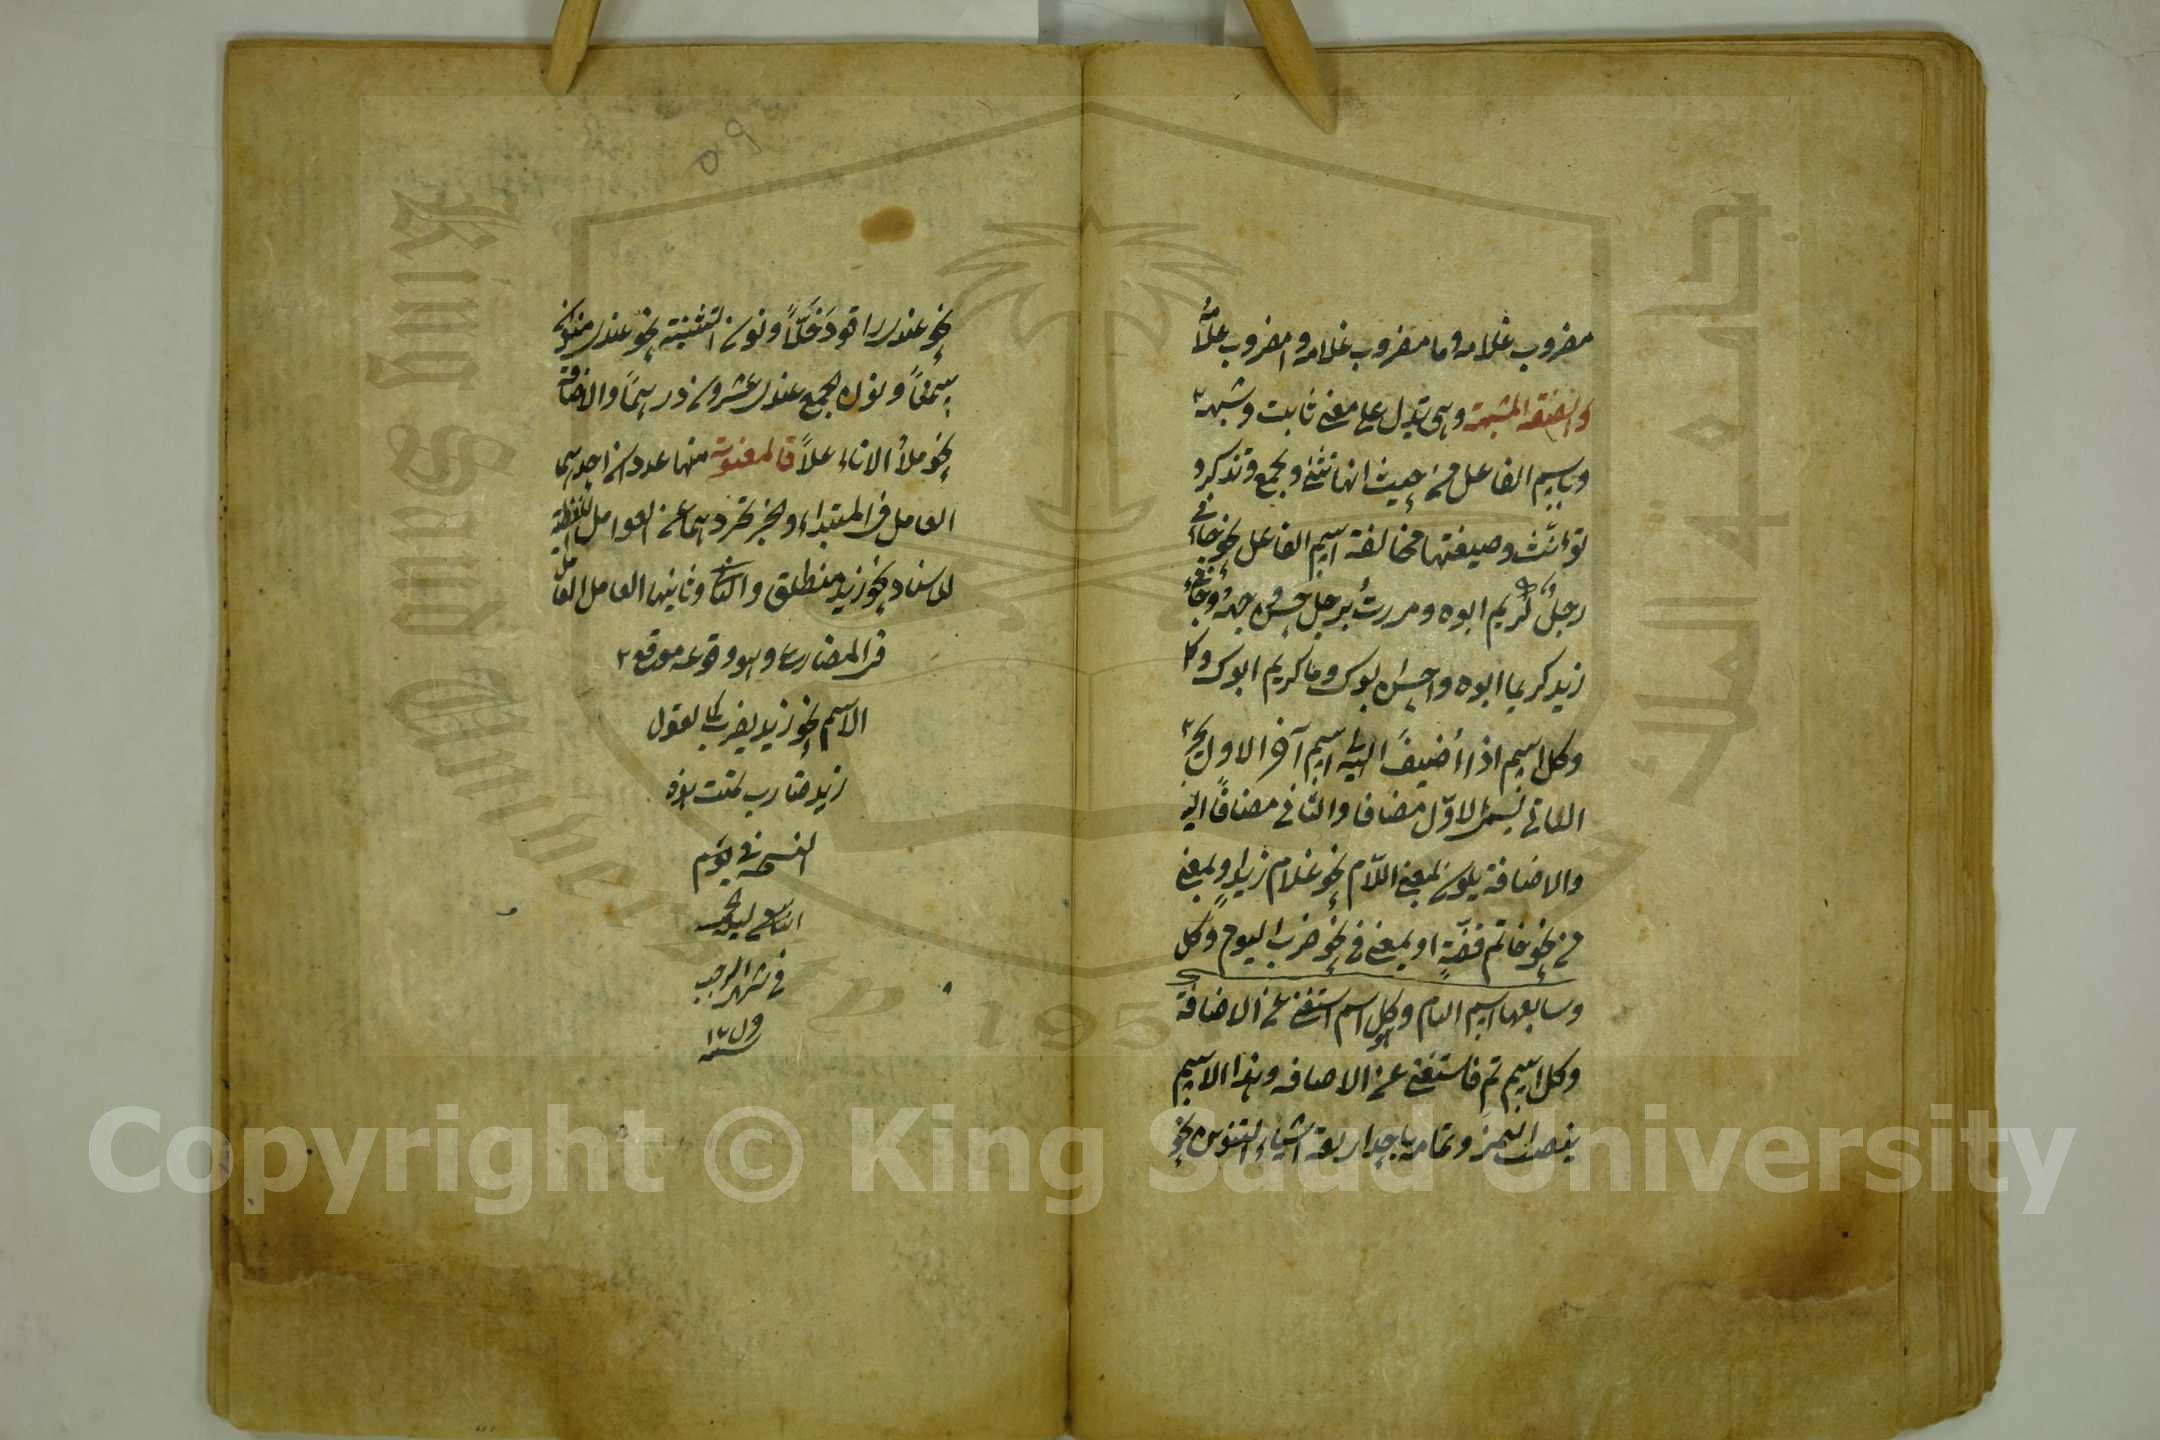 مضروب غلامه وما مضروب غلامه وامضروب غلامه
والصفة المشبهة وهى تدل على معنى ثابت وشبهه
وباسم الفاعل من حيث انها تثنى وتجمع وتذكر و
تؤنث وصيغتها مخالفة اسم الفاعل نحو جائنى
رجل كريم ابوه ومررت برجل حسن وجهه وجائنى
زيد كريما ابوه واحسن ابوك وما كريم ابوك
وكل اسم اذا أضيف اليه اسم آخر الاول يجر
الثانى يسمى الاول مضافا والثانى مضافا اليه
والاضافة يكون بمعنى اللام نحو غلام زيد وبمعنى
من نحو خاتم فضة او بمعنى فى نحو ضرب اليوم وكل
وسابعها اسم التام وهو كل اسم استغنى عن الاضافة
وكل اسم تم فاستغنى عن الاضافه وهذا الاسم
ينصب التميز وتمامه باحد اربعة اشياء التنوين نحو
نحو عندى راقود خلا ونون التثنية نحو عندى منوان
سمنا ونون الجمع عندى عشرون درهما والاضافة
نحو ملأ الاناء عسلا والمعنوية منها عددان احدهما
العامل فى المبتداء والخبر تجردهما عن العوامل اللفظية
للاسناد نحو زيد منطلق وثانيها العامل
فى المضارع وهو وقوعه موقع
الاسم نحو زيد يضرب كما تقول
زيد ضارب تمت هذه
النسخه فى يوم
فى شهر الرجب
سنه
Copyright © King Saud University
King Saud University
195